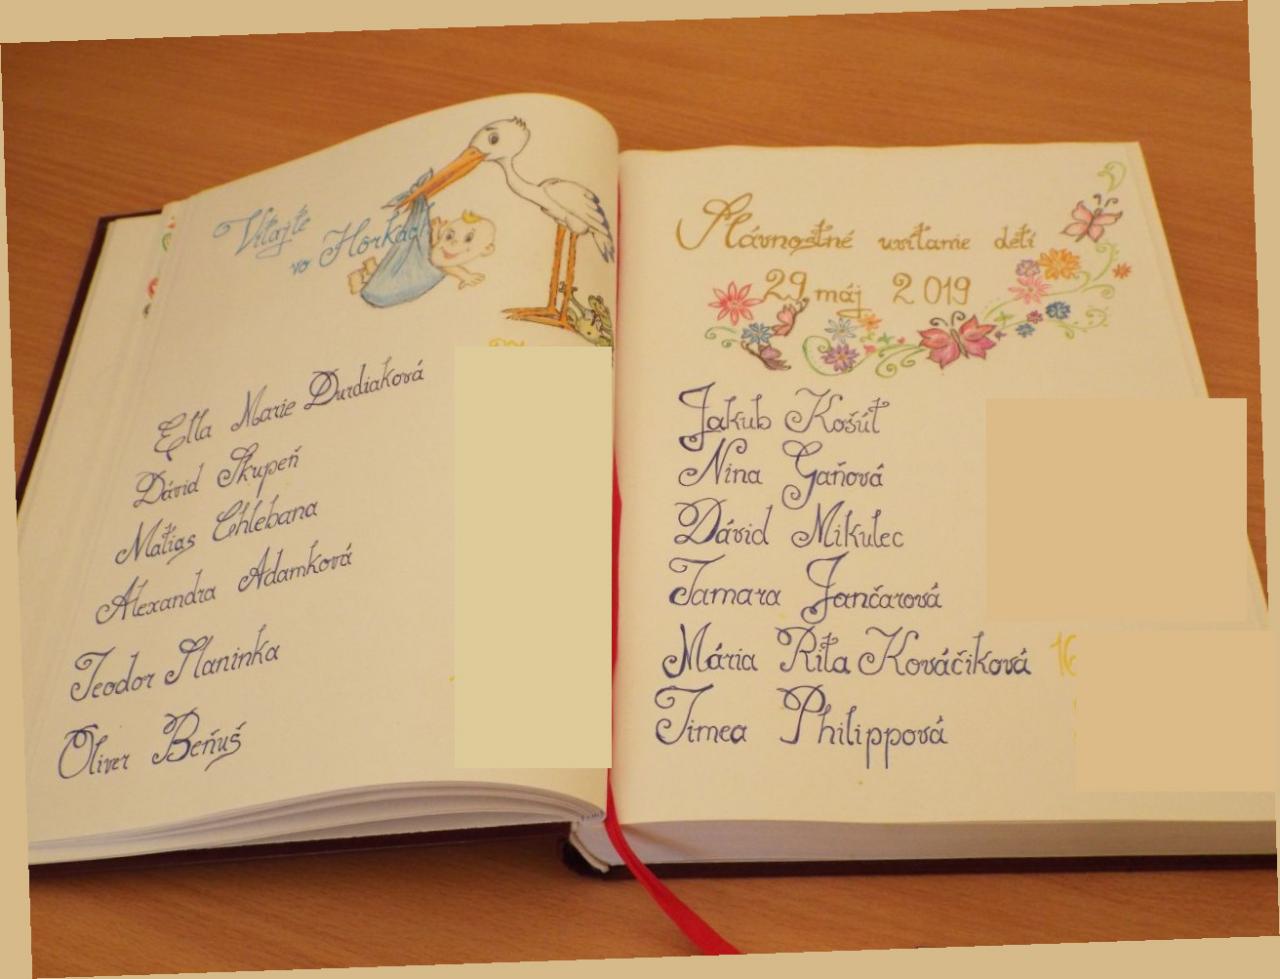 Vitajte
vo Horkách
Ella Marie Durdiaková
Dávid Skupeň
Matias Chlebana
Alexandra Adamková
Teodor Slaninka
Oliver Beňuš
Slávnostné uvítanie detí
29 máj 2019
Jakub Košút
Nina Gaňová
Dávid Mikulec
Tamara Jančarová
Mária Rita Kováčiková
Timea Philippová